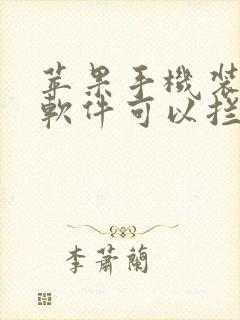 苹果手機裝
軟件可以拦
李蕭蘭